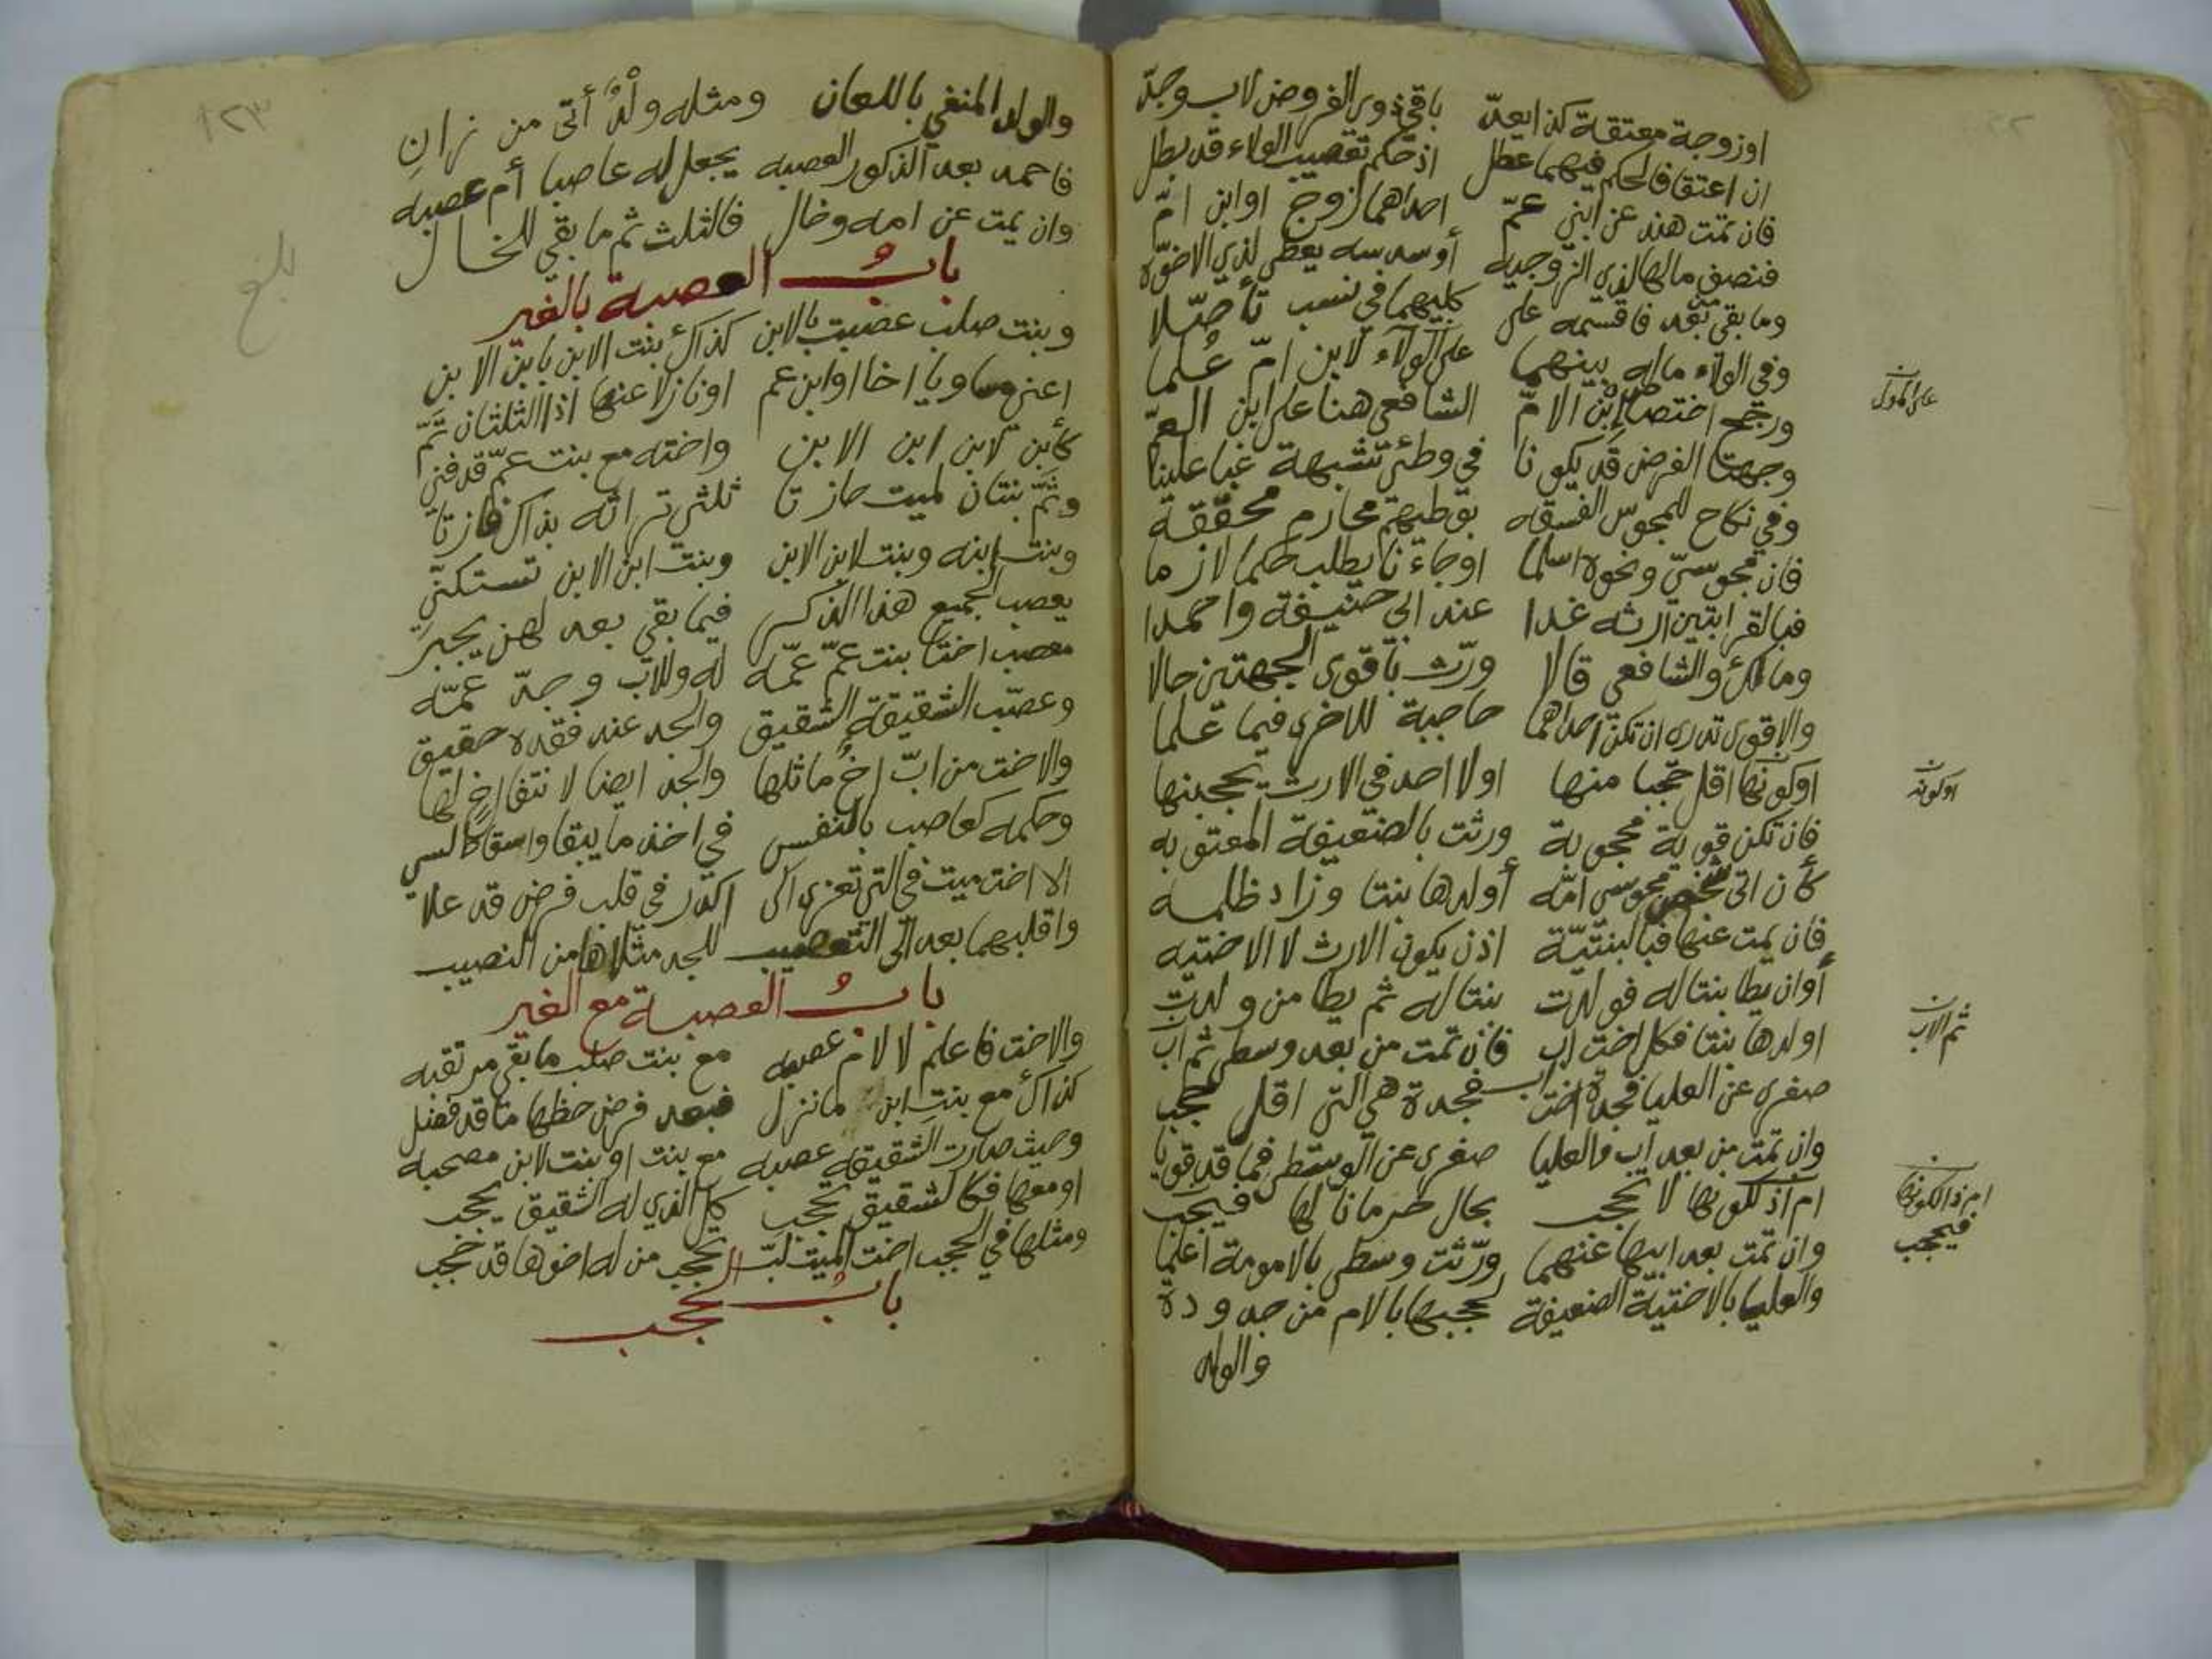 او زوجة معتقة كذا يعدّ باقي ذوي الفروض لاب وجدّ
ان اعتقا فالحكم فيهما عطل اذ حكم تعصيب الولاء قد بطل
فان تمت هند عن ابني عمّ احداهما زوج او ابن امّ
فنصف مالها لذي الزوجيه أو سدسه يعطى لذي الاخوّه
وما بقي بعد فاقسمه على كليهما في نسب تأصّلا
وفي الولاء ماله بينهما على الولاء لابن امّ عُلما
ورجح اختصاص ابن الامّ الشافعي هنا على ابن العمّ
وجهتا الفرض قد يكونا في وطئ تشبهة غبا علينا
وفي نكاح للمجوس الفسقه بوطيهم محارم محققة
فان مجوسيّ ونحوه اسلما او جاءنا يطلب حكما لازما
فبالقرابتين ارثه غدا عند ابي حنيفة واحمدا
ومالك والشافعي قالا ورّث باقوى الجهتين حالا
والاقوى تدره ان تكن احداهما حاجبة للاخرى فيما علما
او كونها اقل حجبا منها او لا احد في الارث يحجبنها
فان تكن قوية محجوبة ورثت بالضعيفة المعتق به
كأن اتى شخص مجوسي امّه أولدها بنتا وزاد ظلمه
فان يمت عنها فبالبنتيّة اذن يكون الارث لا الاختيه
أو ان يطا بنتا له فولدت بنتا له ثم يطا من ولدت
اولدها بنتا فكل اخت اب فان تمت من بعد وسطى ثم اب
صغرى عن العليا فجدة اخت اب فجدة هي التي اقل تحجب
وان تمت من بعد اب والعليا صغرى عن الوسطى فما قد قويا
ام اذ لكونها لا تحجب بحال حرمانا لها فيحجب
وان تمت بعد ابيها عنهما ورّثت وسطى بالامومة اعلما
والعليا بالاختية الضعيفة لحجبها بالام من جدودة
والولد
او كونه
ثم الاب
ام ذا لكونها
فيحجب
١٢٣
والولد المنفي باللعان ومثله ولدٌ أتى من زانِ
فاحمد بعد الذكور العصبه يجعل له عاصبا أم عصبه
وان يمت عن امه وخال فالثلث ثم ما بقي للخال
بلغ
باب العصبة بالغير
وبنت صلب عصبت بالابن كذاك بنت الابن بابن الابن
اعني مساويا اخا او ابن عم او نازلا عنها اذا الثلثان تمّ
كأبن لابن ابن الابن واخته مع بنت عمّ قد فني
وثمّ بنتان لميت حازتا ثلثي تراثه بذاك فازتا
وبنت ابنه وبنت لابن الابن وبنت ابن الابن تستكنّ
يعصب الجميع هذا الذكر فيما بقي بعد لهن يجبر
معصب اختا بنت عمّ عمّه له وللاب وجدّ عمّه
وعصّب الشقيقة الشقيق والجد عند فقده حقيق
والاخت من ابّ اخٌ ماثلها والجد ايضا لانتفا اخٍ لها
وحكمه كعاصب بالنفس في اخذ ما يبقا واسقاط السي
الا اخت ميت في التي تعزى الى اكدر في قلب فرض قد علا
واقلبهما بعد الى التعصيب للجد مثلاها من النصيب
باب العصبة مع الغير
والاخت فاعلم لا لام عصبه مع بنت صلب ما بقي مرتقبه
كذاك مع بنت ابن ما نزل فبعد فرض حظها ما قد فضل
وحيث صارت الشقيقه عصبه مع بنت او بنت لابن مصحبه
او معها فكالشقيق تحجب كل الذي له الشقيق يحجب
ومثلها في الحجب اخت الميت لبّ تحجب من له اخوها قد حجب
باب الحجب